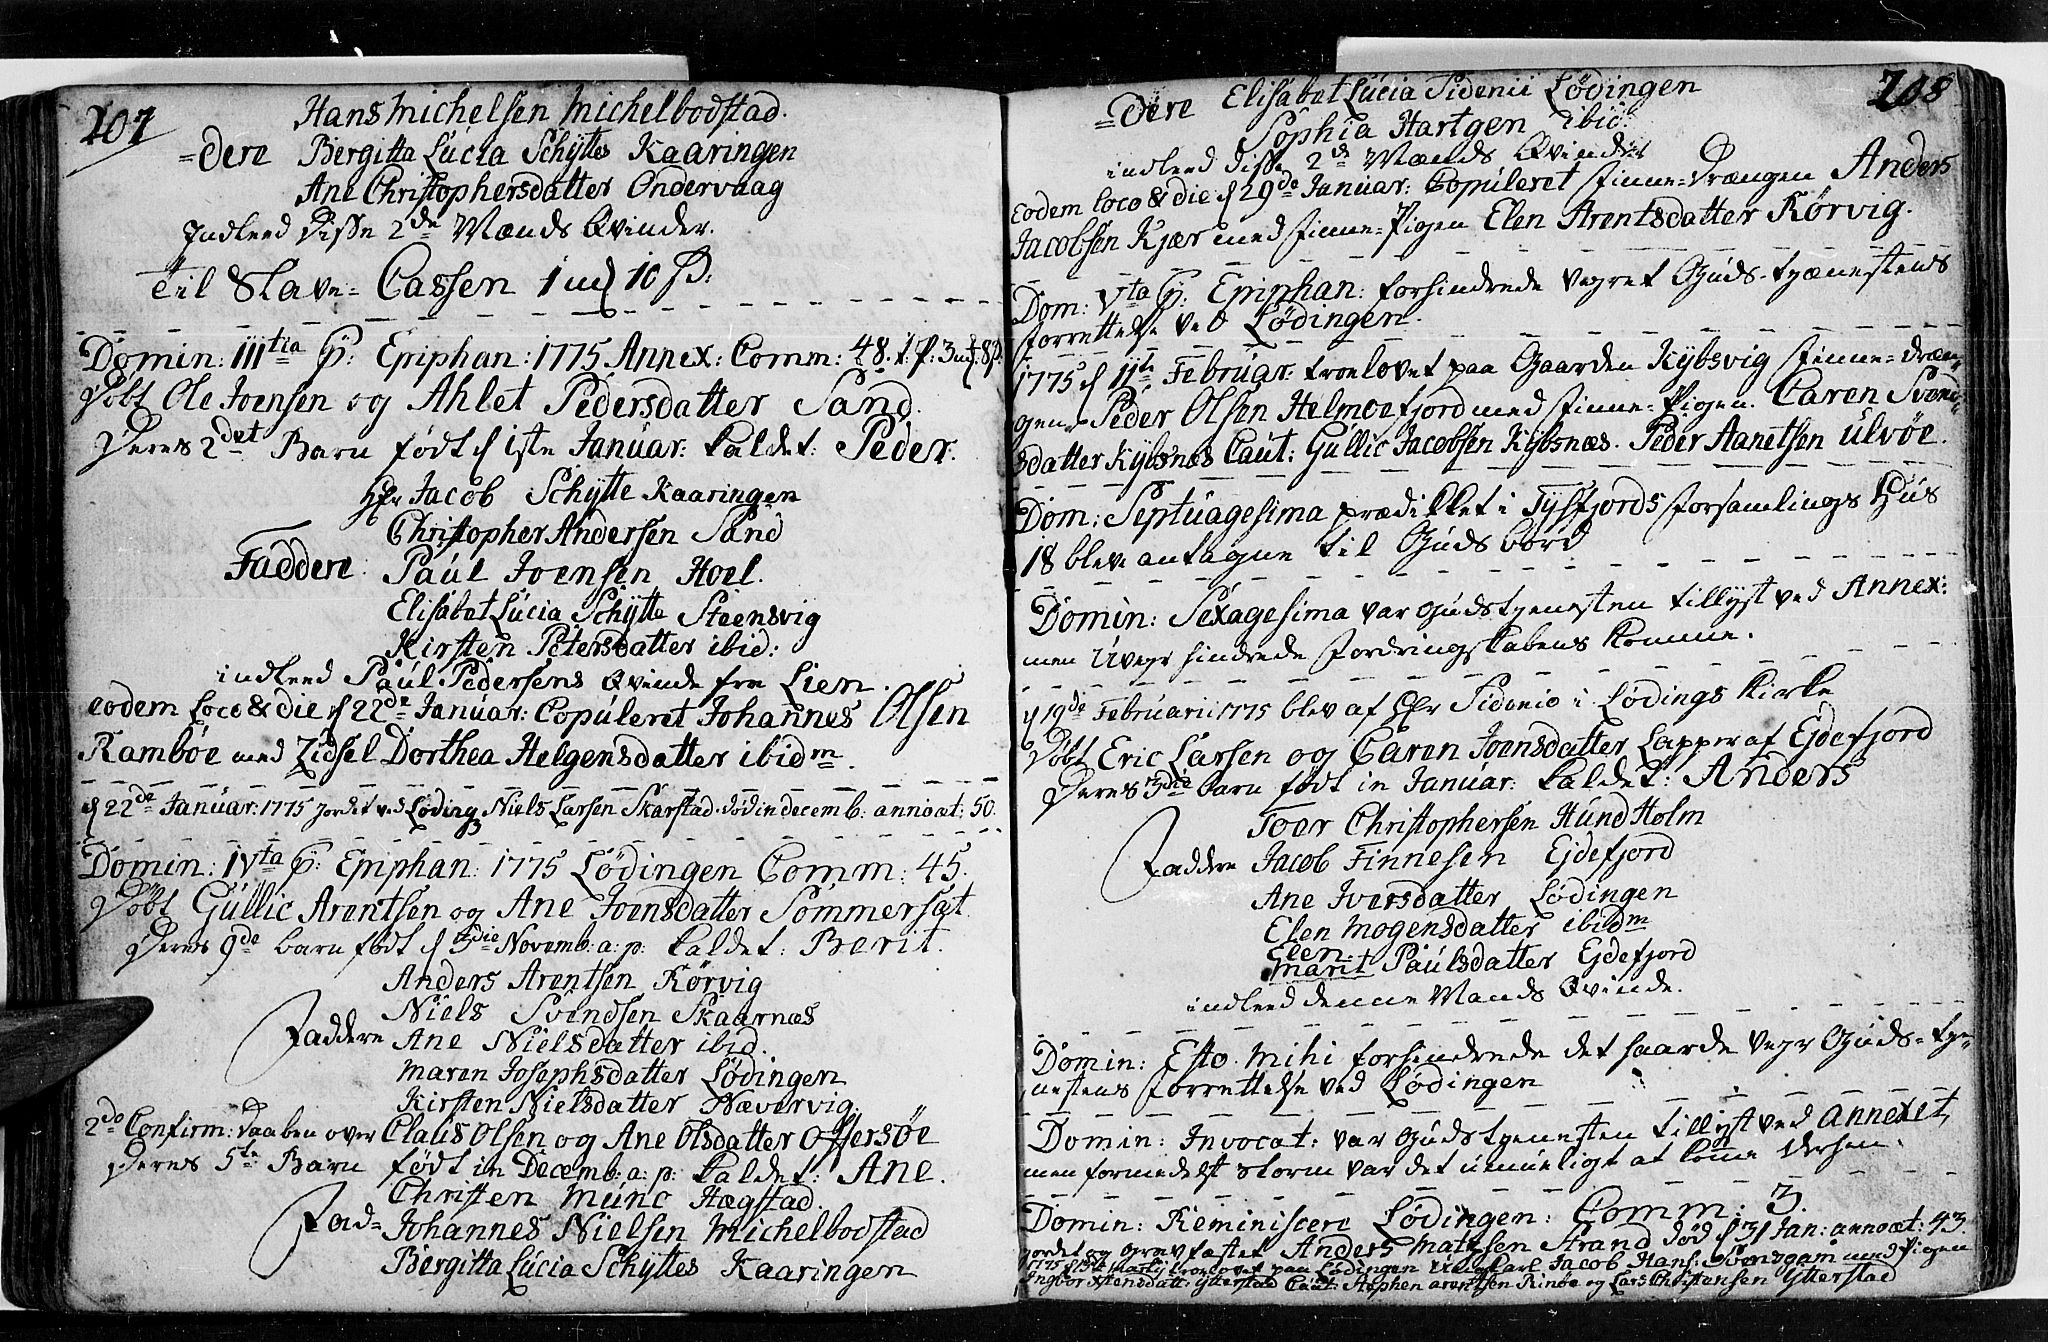 207
Hans Michelsen Michelbodstad.
=dere Bergitta Lucia Schyttes Kaaringen
Ane Christophersdatter Ondervaag
Indleed disse 2de Mænds Qvinder.
Til Slave=Cassen 1 mk 10 ß:
Domin: IIItia p: Epiphan: 1775 Annex: Comm: 48.
Døbt Ole Joensen og Ahlet Pedersdatter Sand.
Deres 2det Barn født d 1ste Januar: kaldet: Peder.
Hr Jacob Schytte Kaaringen
Christopher Andersen Sand
Faddere Paul Joensen Hoel.
Elisabet Lucia Schytte Steensvig
Kirsten Petersdatter ibid:
indleed Paul Pedersens Qvinde fra Lien.
eodem loco & die d 22de Januar: Copuleret Johannes Olsen
Ramböe med Zidsel Dorthea Helgensdatter ibidm.
d 22de Januar: 1775 jordet ved Løding Niels Larsen Skarstad. død in decemb: anno æt: 50.
Domin: IVta p: Epiphan: 1775 Lödingen Comm: 45.
Døbt Gullic Arentsen og Ane Joensdatter Sommersæt.
Deres 9de barn født d 5die Novemb: a: p: kaldet: Berit.
Anders Arentsen Körvig
Niels Svendsen Skaarnæs
Faddere Ane Nielsdatter ibid.
Maren Josephsdatter Lödingen
Kirsten Nielsdatter Nævervig.
2do Confirm: Daaben over Claus Olsen og Ane Olsdatter Offersöe
Deres 5te Barn født in Decemb: a: p: kaldet: Ane.
Christen Munc Hægstad.
Fad= Johannes Nielsen Michelbodstad
Bergitta Lucia Schyttes Kaaringen
208
=dere Elisabet Lucia Sidenii Lödingen
Sophia Hartgen ibid:
indleed disse 2de Mænds Qvinder
eodem loco & die d 29de Januar: Copuleret Finne=Drængen Anders
Jacobsen Kjær med Finne=Pigen Elen Arentsdatter Körvig.
Dom: Vta p: Epiphan: forhindrede Vejret Guds-tjænestens
Forrettelse ved Lödingen.
1775 d 11te Februar: troelovet paa Gaarden Kybsvig Finne=Dræn=
gen Peder Olsen Helmoefjord med Finne=Pigen. Caren Svend=
sdatter Kybsnæs Caut: Gullic Jacobsen Kybsnæs. Peder Aanetsen Ulvöe.
Dom: Septuagesima prædikket i Tysfjords Forsamlings Huus
18 blev antagne til Guds bord
Domin: Sexagesima var Gudstjenesten tillyst ved Annex:
men Uvejr hindrede Fordringskabens komme.
d 19de Februarii 1775 blev af Hr Sidenio i Lödings Kirke
Døbt Eric Larsen og Caren Joensdatter Lapper af Ejdefjord
Deres 3die barn født in Januar: kaldet: Anders
Toer Christophersen Hund Holm
Faddere Jacob Finnesen Ejdefjord
Ane Iversdatter Lödingen
Elen Mogensdatter ibidm
Elen.
Marit Paulsdatter Ejdefjord
indleed denne Mands Qvinde.
Domin: Esto. Mihi forhindrede det haarde Vejr Guds=tje=
nestens Forrettelse ved Lödingen
Domin: Invocat: var Gudstjenesten tillyst ved Annexet,
men formedelst Storm var det umueligt at komme dersen.
Domin: Reminiscere Lödingen: Comm: 3.
jordet og gravfæstet Anders Matsen Strand død d 31 Jan: anno æt: 43.
1775 d Martii troelovet paa Lödingen Jacob Hans: med Pigen
Ingbor Stensdatt: Ytterstad Caut: Stephen Arentsen Rinöe og Lars Christensen Ytterstad